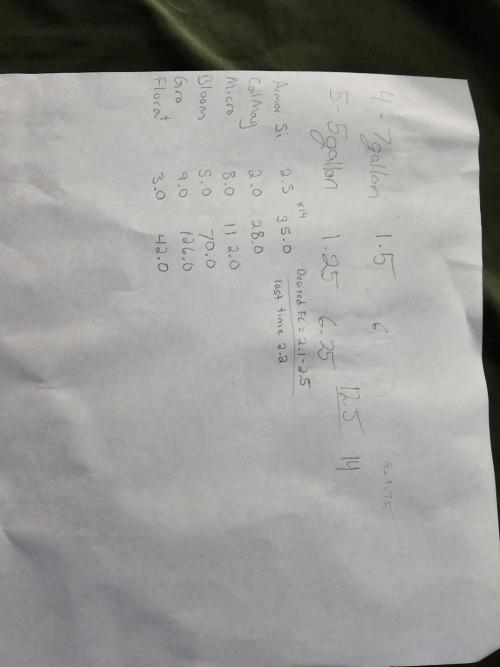 4 - 7gallon 1.5 6 1.75
5 - 5gallon 1.25 6.25 12.5 14
x14 Desired EC = 2.1-2.5
Armor Si 2.5 35.0 last time 2.2
CalMag 2.0 28.0
Micro 8.0 112.0
Bloom 5.0 70.0
Gro 9.0 126.0
Florat 3.0 42.0